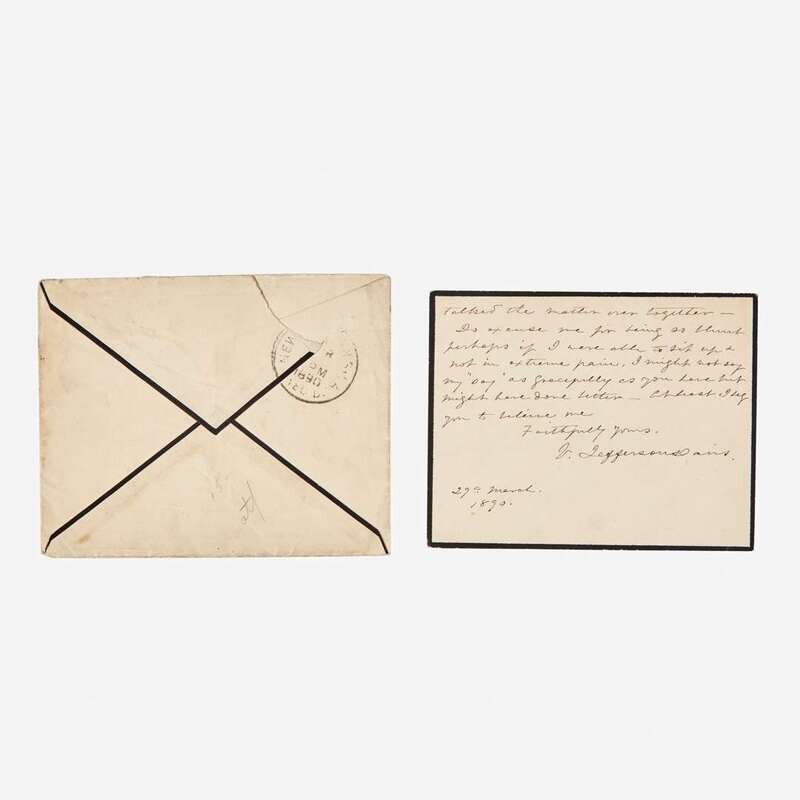 NEW
PM
1890
REC'D.
talked the matter over together —
Do excuse me for being so blunt
perhaps if I were able to sit up &
not in extreme pain, I might not say
my "say" as gracefully as you have but
might have done better — At least I beg
you to believe me
Faithfully yours.
V. Jefferson Davis.
29th March.
1890.